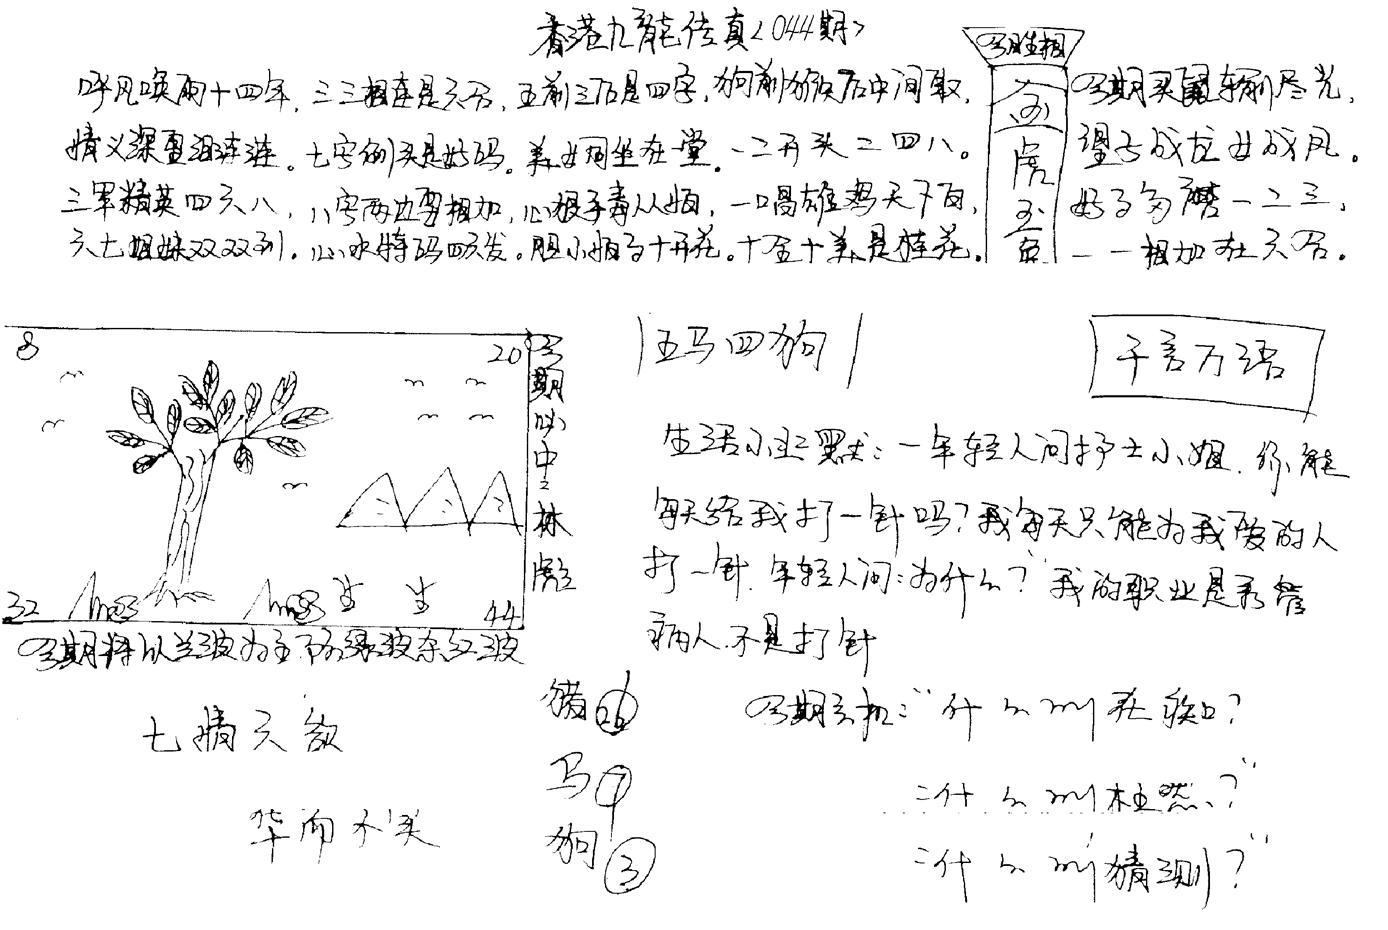 香港九龍传真<044期>
今期生相
呼风唤雨十四年，三三相连是六合，五前三后是四字，狗前猴后中间取，
情义深重泪涟涟。七字倒头是好码。美女同坐在堂。一二开头二四八。
三军精英四六八，八字两边要相加，心狠手毒人人怕，一唱雄鸡天下白，
六七姐妹双双到。心水特码四六发。胆小怕 十开花。十全十美是桂花。
今期买 输 尽光，
望子成龙女成凤。
好了多磨一二三，
一一相加在六合。
8
20
32
44
今期必中 林
生
生
今期特以兰波为主下防绿波余红波
七情六欲
华而不实
猪 26
马 7
狗 3
五马四狗
千言万语
生活小幽默：一年轻人问护士小姐，你能
每天给我打一针吗？我每天只能为我爱的人
打一针，年轻人问：为什么？我的职业是看管
病人，不是打针
今期玄机：“什么叫 ？
“什么叫枉然？”
“什么叫猜测？”